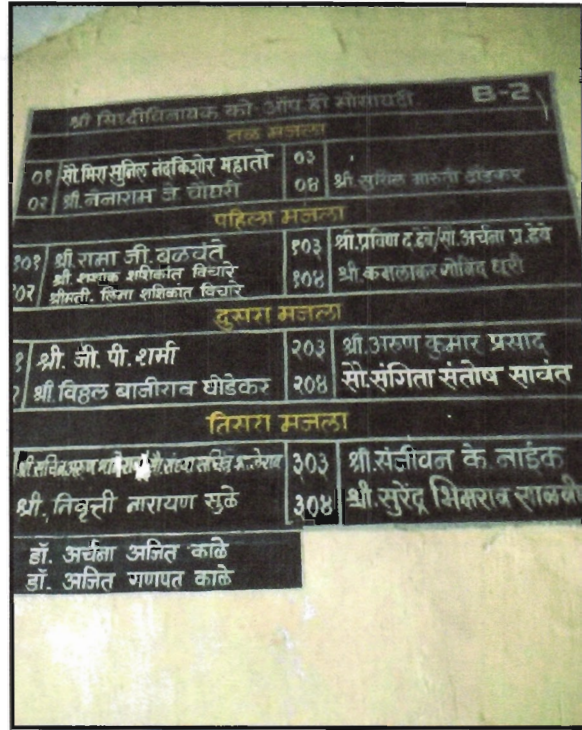 श्री सिध्दीविनायक को-ऑप हौ सोसायटी B-2
तळ मजला
०१ सौ.मिरा सुनिल नंदकिशोर महातो ०३
०२ श्री.नेनाराम जे चौधरी ०४ श्री सुनिल मारुती
पहिला मजला
१०१ श्री.रामा जी.बळवंते १०३ श्री.प्रविण द.देबे/सौ.अर्चना प्र.देबे
श्री शशांक शशिकांत विचारे १०४ श्री.कमलाकर गोविंद धुरी
०२ श्रीमती. लिमा शशिकांत विचारे
दुसरा मजला
१ श्री. जी. पी. शर्मा २०३ श्री.अरुण कुमार प्रसाद
श्री.विठ्ठल बाजीराव धोंडेकर २०४ सौ.संगिता संतोष सावंत
तिसरा मजला
श्री.सचिन अरुण सौ.संध्या सचिन ३०३ श्री.संजीवन के.नाईक
श्री. निवृत्ती नारायण सुळे ३०४ श्री.सुरेंद्र भिमराव साळवी
डॉ. अर्चना अजित काळे
डॉ. अजित गणपत काळे